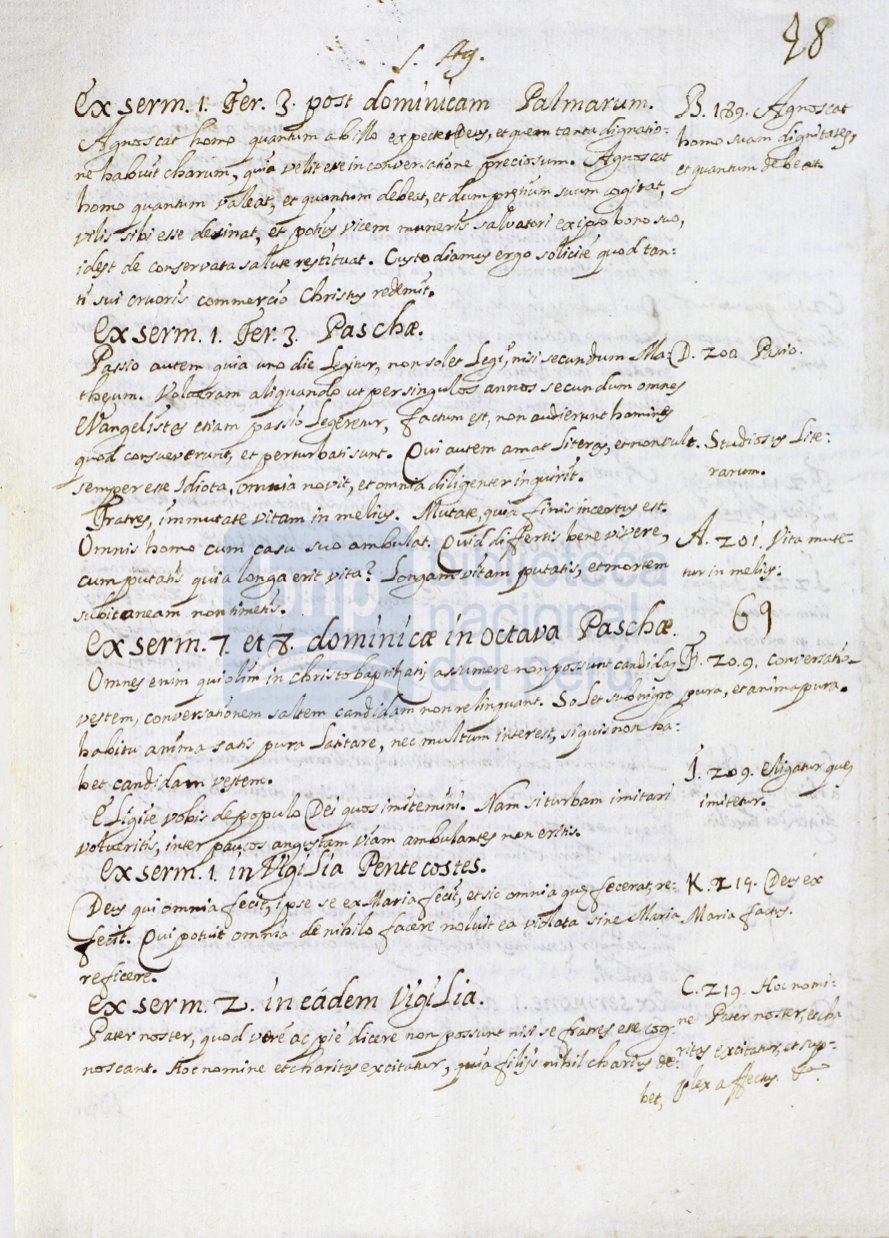 S. Ag.
28
Ex serm. 1. Fer. 3. post dominicam Palmarum.
Agnoscat homo quantum ab illo expectet Deus, et quem tanta dignatio-
ne habuit charum, quia velit esse in conversatione preciosum. Agnoscat
homo quantum valeat, et quantum debeat, et dum pretium suum cogitat,
vilis sibi esse desinat, et potius vicem muneris salvatori ex ipso bono suo,
idest de conservata salute restituat. Custodiamus ergo solicite quod tan-
ti sui cruoris commercio Christus redemit.
B. 189. Agnoscat
homo suam dignitatem,
et quantum debeat.
Ex serm. 1. Fer. 3. Paschæ.
Passio autem quia uno die legitur, non solet legi, nisi secundum Ma-
theum. Volueram aliquando ut per singulos annos secundum omnes
Evangelistas etiam passio legeretur, factum est, non audierunt homines
quod consueverunt, et perturbati sunt. Qui autem amat literas, et non vult
semper esse Idiota, omnia novit, et omnia diligenter inquirit.
D. 200. Pasio.
Studiosus lite-
rarum.
Fratres, immutate vitam in melius. Mutate, quia finis incertus est.
Omnis homo cum casu suo ambulat. Quid differtis bene vivere,
cum putatis quia longa erit vita? Longam vitam putatis, et mortem
subitaneam non timetis.
A. 201. Vita mute-
tur in melius.
69
Ex serm. 7. et 8. dominicæ in octava Paschæ.
Omnes enim qui olim in Christo baptizati, assumere non possunt candidas
vestem, conversationem saltem candidam non relinquant. Solet sub nigro
habitu anima satis pura latitare, nec multum interest, si quis non ha-
bet candidam vestem.
F. 209. conversatio
pura, et anima pura.
Eligite vobis de populo Dei quos imitemini. Nam si turbam imitari
volueritis, inter paucos angustam viam ambulantes non eritis.
J. 209. Eligatur quem
imitetur.
Ex serm. 1. in Vigilia Pentecostes.
Deus qui omnia fecit, ipse se ex Maria fecit, et sic omnia quæ fecerat, re-
fecit. Qui potuit omnia de nihilo facere noluit ea violata sine Maria
reficere.
K. 219. Deus ex
Maria factus.
Ex serm. 2. in eádem vigilia.
Pater noster, quod veré ac pié dicere non possunt nisi se fratres esse cog-
noscant. Hoc nomine et charitas excitatur, quia filijs nihil charius de-
bet,
C. 219. Hoc nomi-
ne Pater noster, et cha
ritas excitatur, et sup-
plex affectus. &.
biblioteca
nacional
del perú